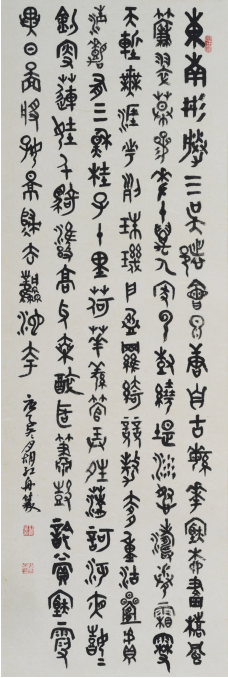 東南形勝三吳都會錢唐自古繁華煙柳畫橋風
簾翠幕參差十萬人家雲樹繞堤沙怒濤卷霜雪
天塹無涯市列珠璣戶盈羅綺競豪奢重湖疊巘
清嘉有三秋桂子十里荷華羌管弄晴菱歌泛夜嬉嬉
釣叟蓮娃千騎擁高牙乘醉聽簫鼓吟賞煙霞
異日圖將好景歸去鳳池夸